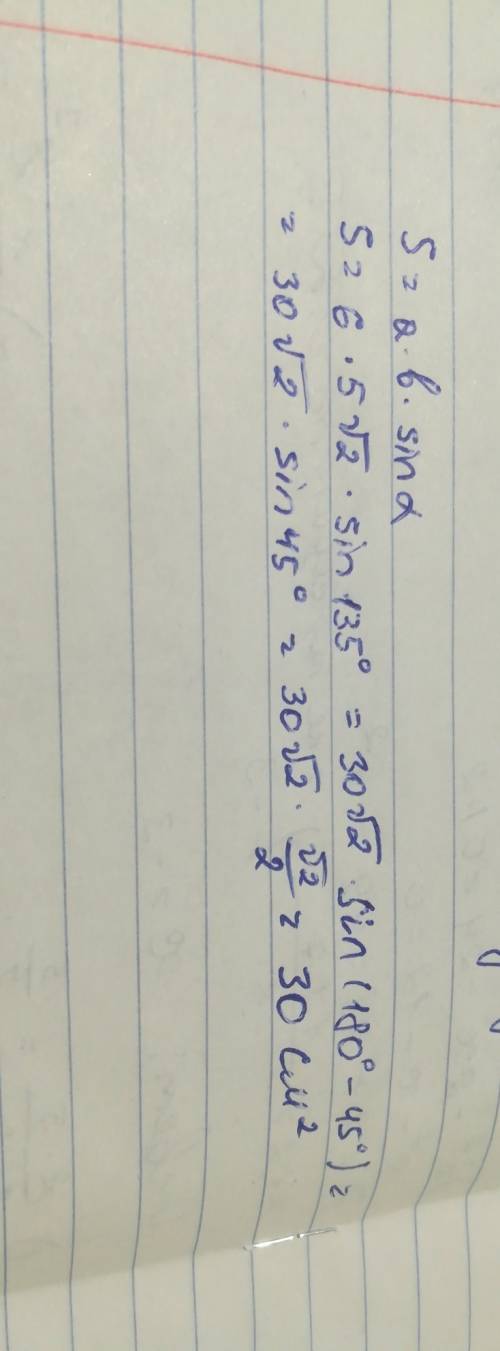 S = a · b · sin α
S = 6 · 5√2 · sin 135° = 30√2 · sin (180° - 45°) =
= 30√2 · sin 45° = 30√2 · √2/2 = 30 см²